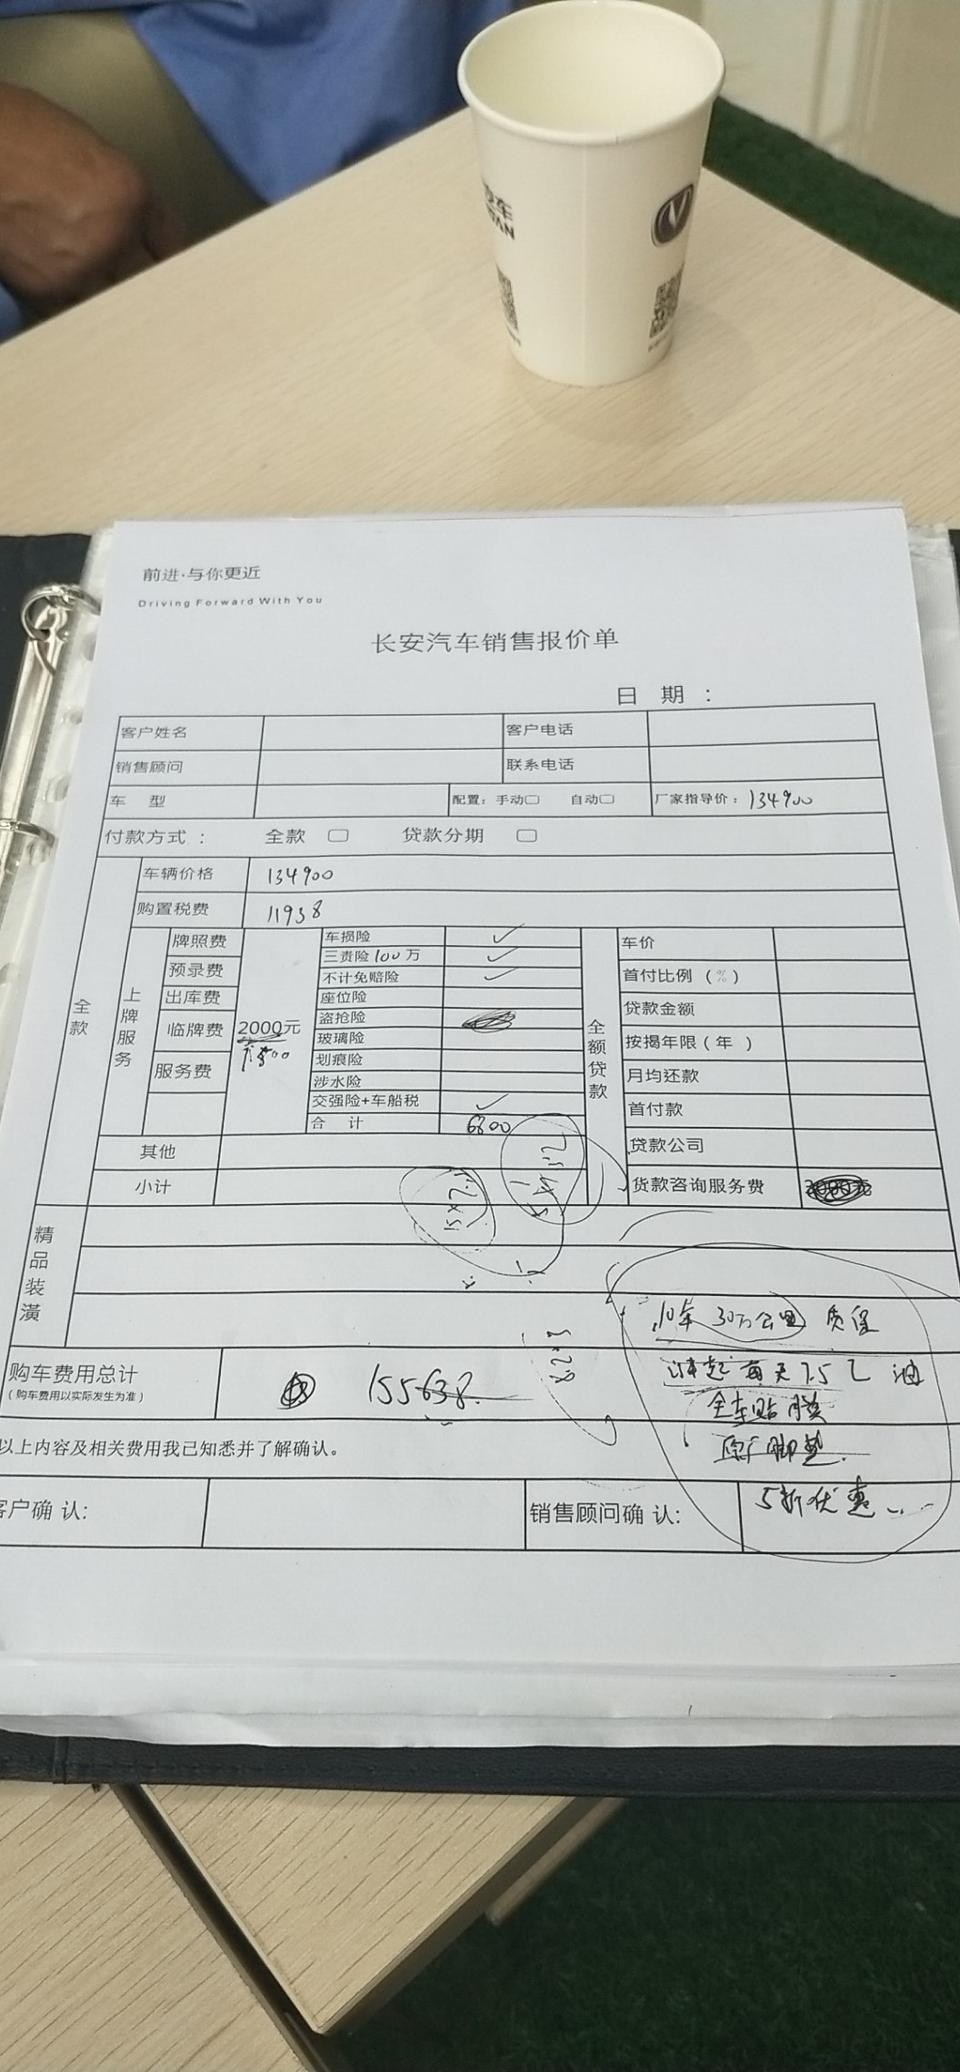 前进·与你更近
Driving Forward With You
长安汽车销售报价单
日 期 ：
客户姓名 客户电话
销售顾问 联系电话
车 型 配置：手动 自动 厂家指导价：134900
付款方式： 全款 贷款分期
全款
车辆价格 134900
购置税费 11938
上牌服务
牌照费
预录费
出库费
临牌费
服务费
2000元
车损险 ✓
三责险100万 ✓
不计免赔险 ✓
座位险
盗抢险
玻璃险
划痕险
涉水险
交强险+车船税 ✓
合 计 6800
全额贷款
车价
首付比例（%）
贷款金额
按揭年限（年 ）
月均还款
首付款
贷款公司
货款咨询服务费
其他
小计
精品装潢
10年 30万公里 质保
购车费用总计
（购车费用以实际发生为准）
155638
每天7.5 油
全车贴膜
原厂脚垫.
5折优惠
以上内容及相关费用我已知悉并了解确认。
客户确 认:
销售顾问确 认: